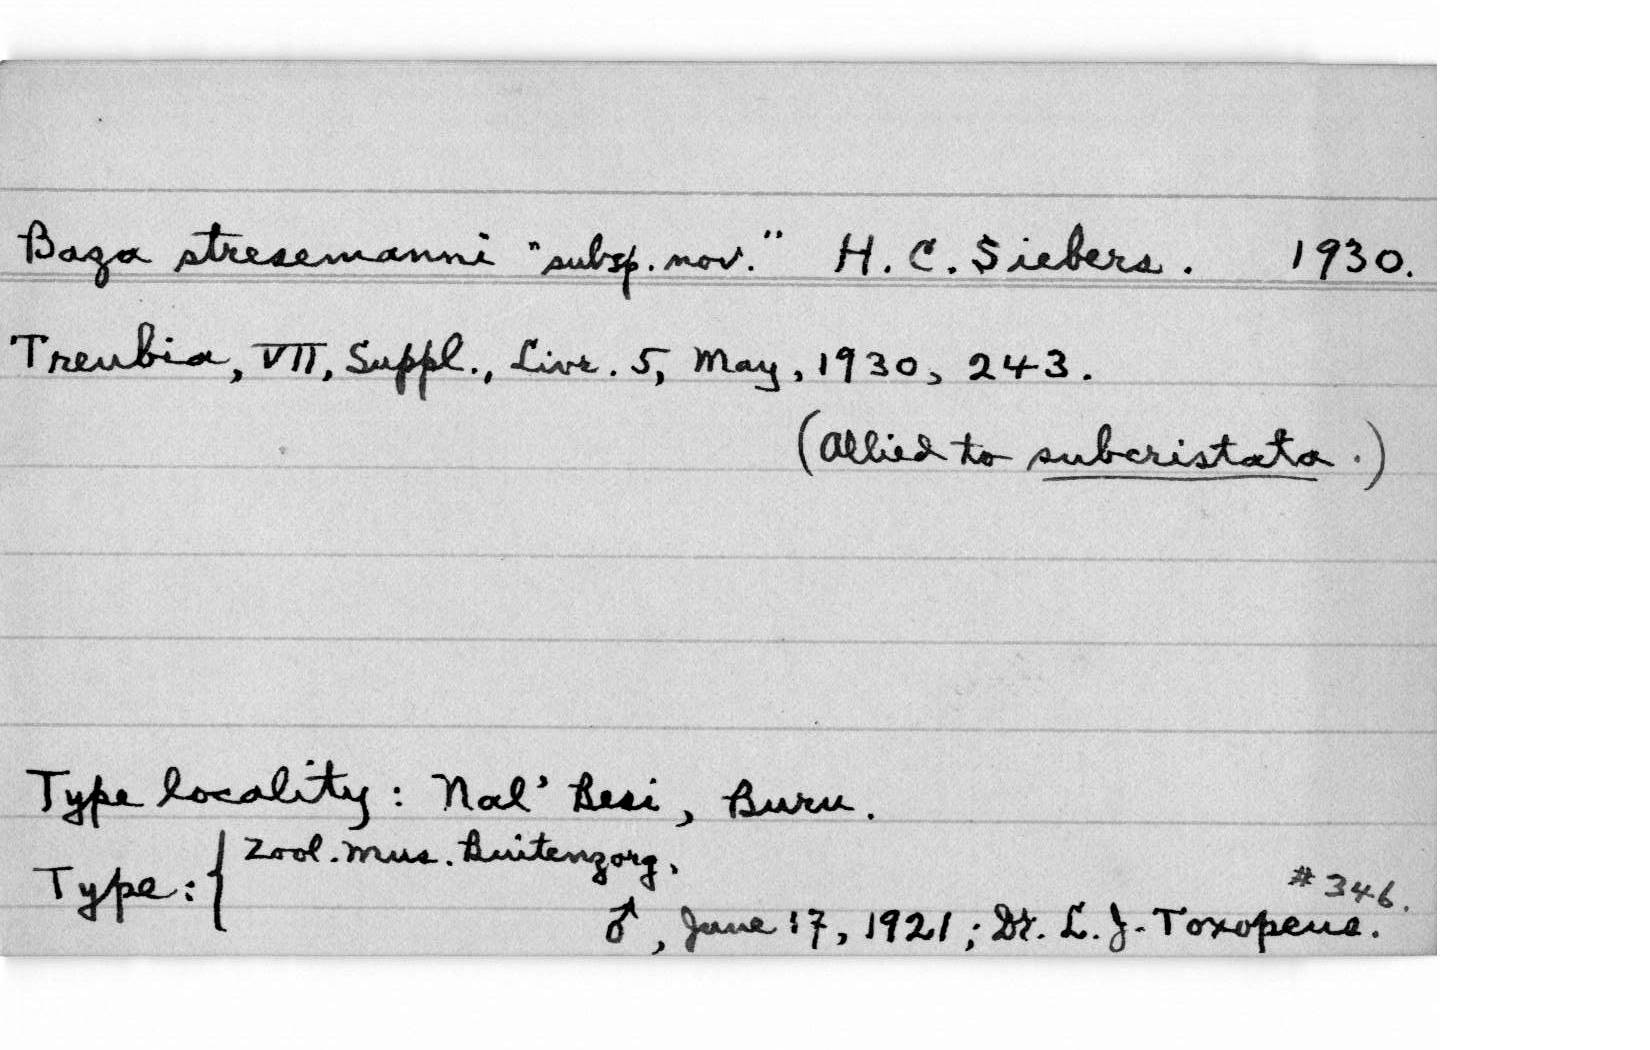 Baza stresemanni "subsp. nov." H. C. Siebers. 1930.
Treubia, VII, Suppl., Livr. 5, May, 1930, 243.
(Allied to subcristata.)
Type locality: Nal' Besi, Buru.
Type: { Zool. Mus. Buitenzorg,
#346.
♂, June 17, 1921; Dr. L. J. Toxopeus.